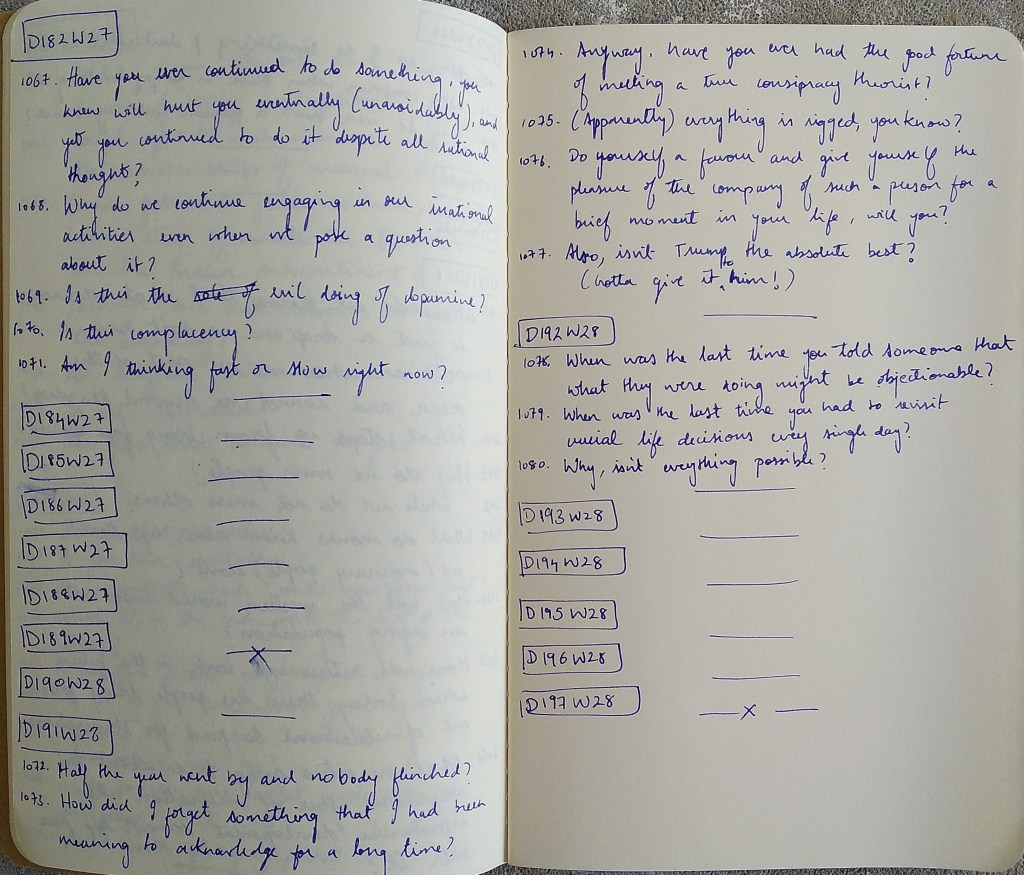 D182W27
1067. Have you ever continued to do something, you
knew will hurt you eventually (unavoidably), and
yet you continued to do it despite all rational
thought?
1068. Why do we continue engaging in our irrational
activities even when we pose a question
about it?
1069. Is this the role of evil doing of dopamine?
1070. Is this complacency?
1071. Am I thinking fast or slow right now?
D184W27
D185W27
D186W27
D187W27
D188W27
D189W27
X
D190W28
D191W28
1072. Half the year went by and nobody flinched?
1073. How did I forget something that I had been
meaning to acknowledge for a long time?
1074. Anyway, have you ever had the good fortune
of meeting a true conspiracy theorist?
1075. (Apparently) everything is rigged, you know?
1076. Do yourself a favour and give yourself the
pleasure of the company of such a person for a
brief moment in your life, will you?
1077. Also, isn't Trump the absolute best?
(Gotta give it to him!)
D192W28
1078. When was the last time you told someone that
what they were doing might be objectionable?
1079. When was the last time you had to revisit
crucial life decisions every single day?
1080. Why, isn't everything possible?
D193W28
D194W28
D195W28
D196W28
D197W28
X